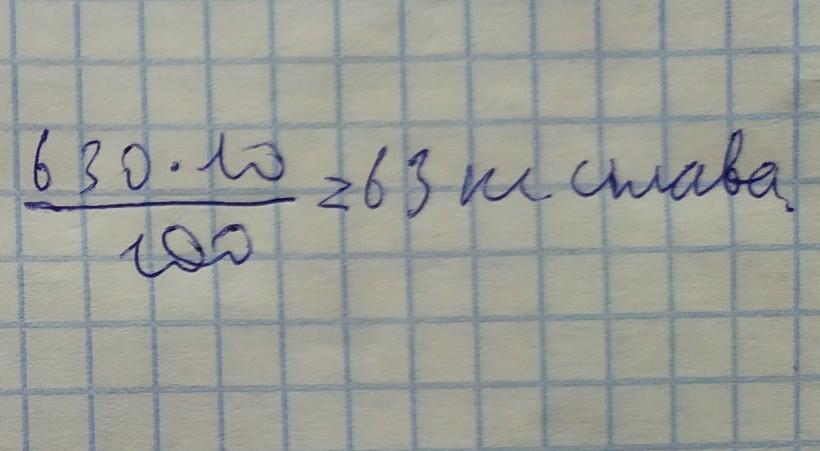 630·10/100 = 63 кг сплава.